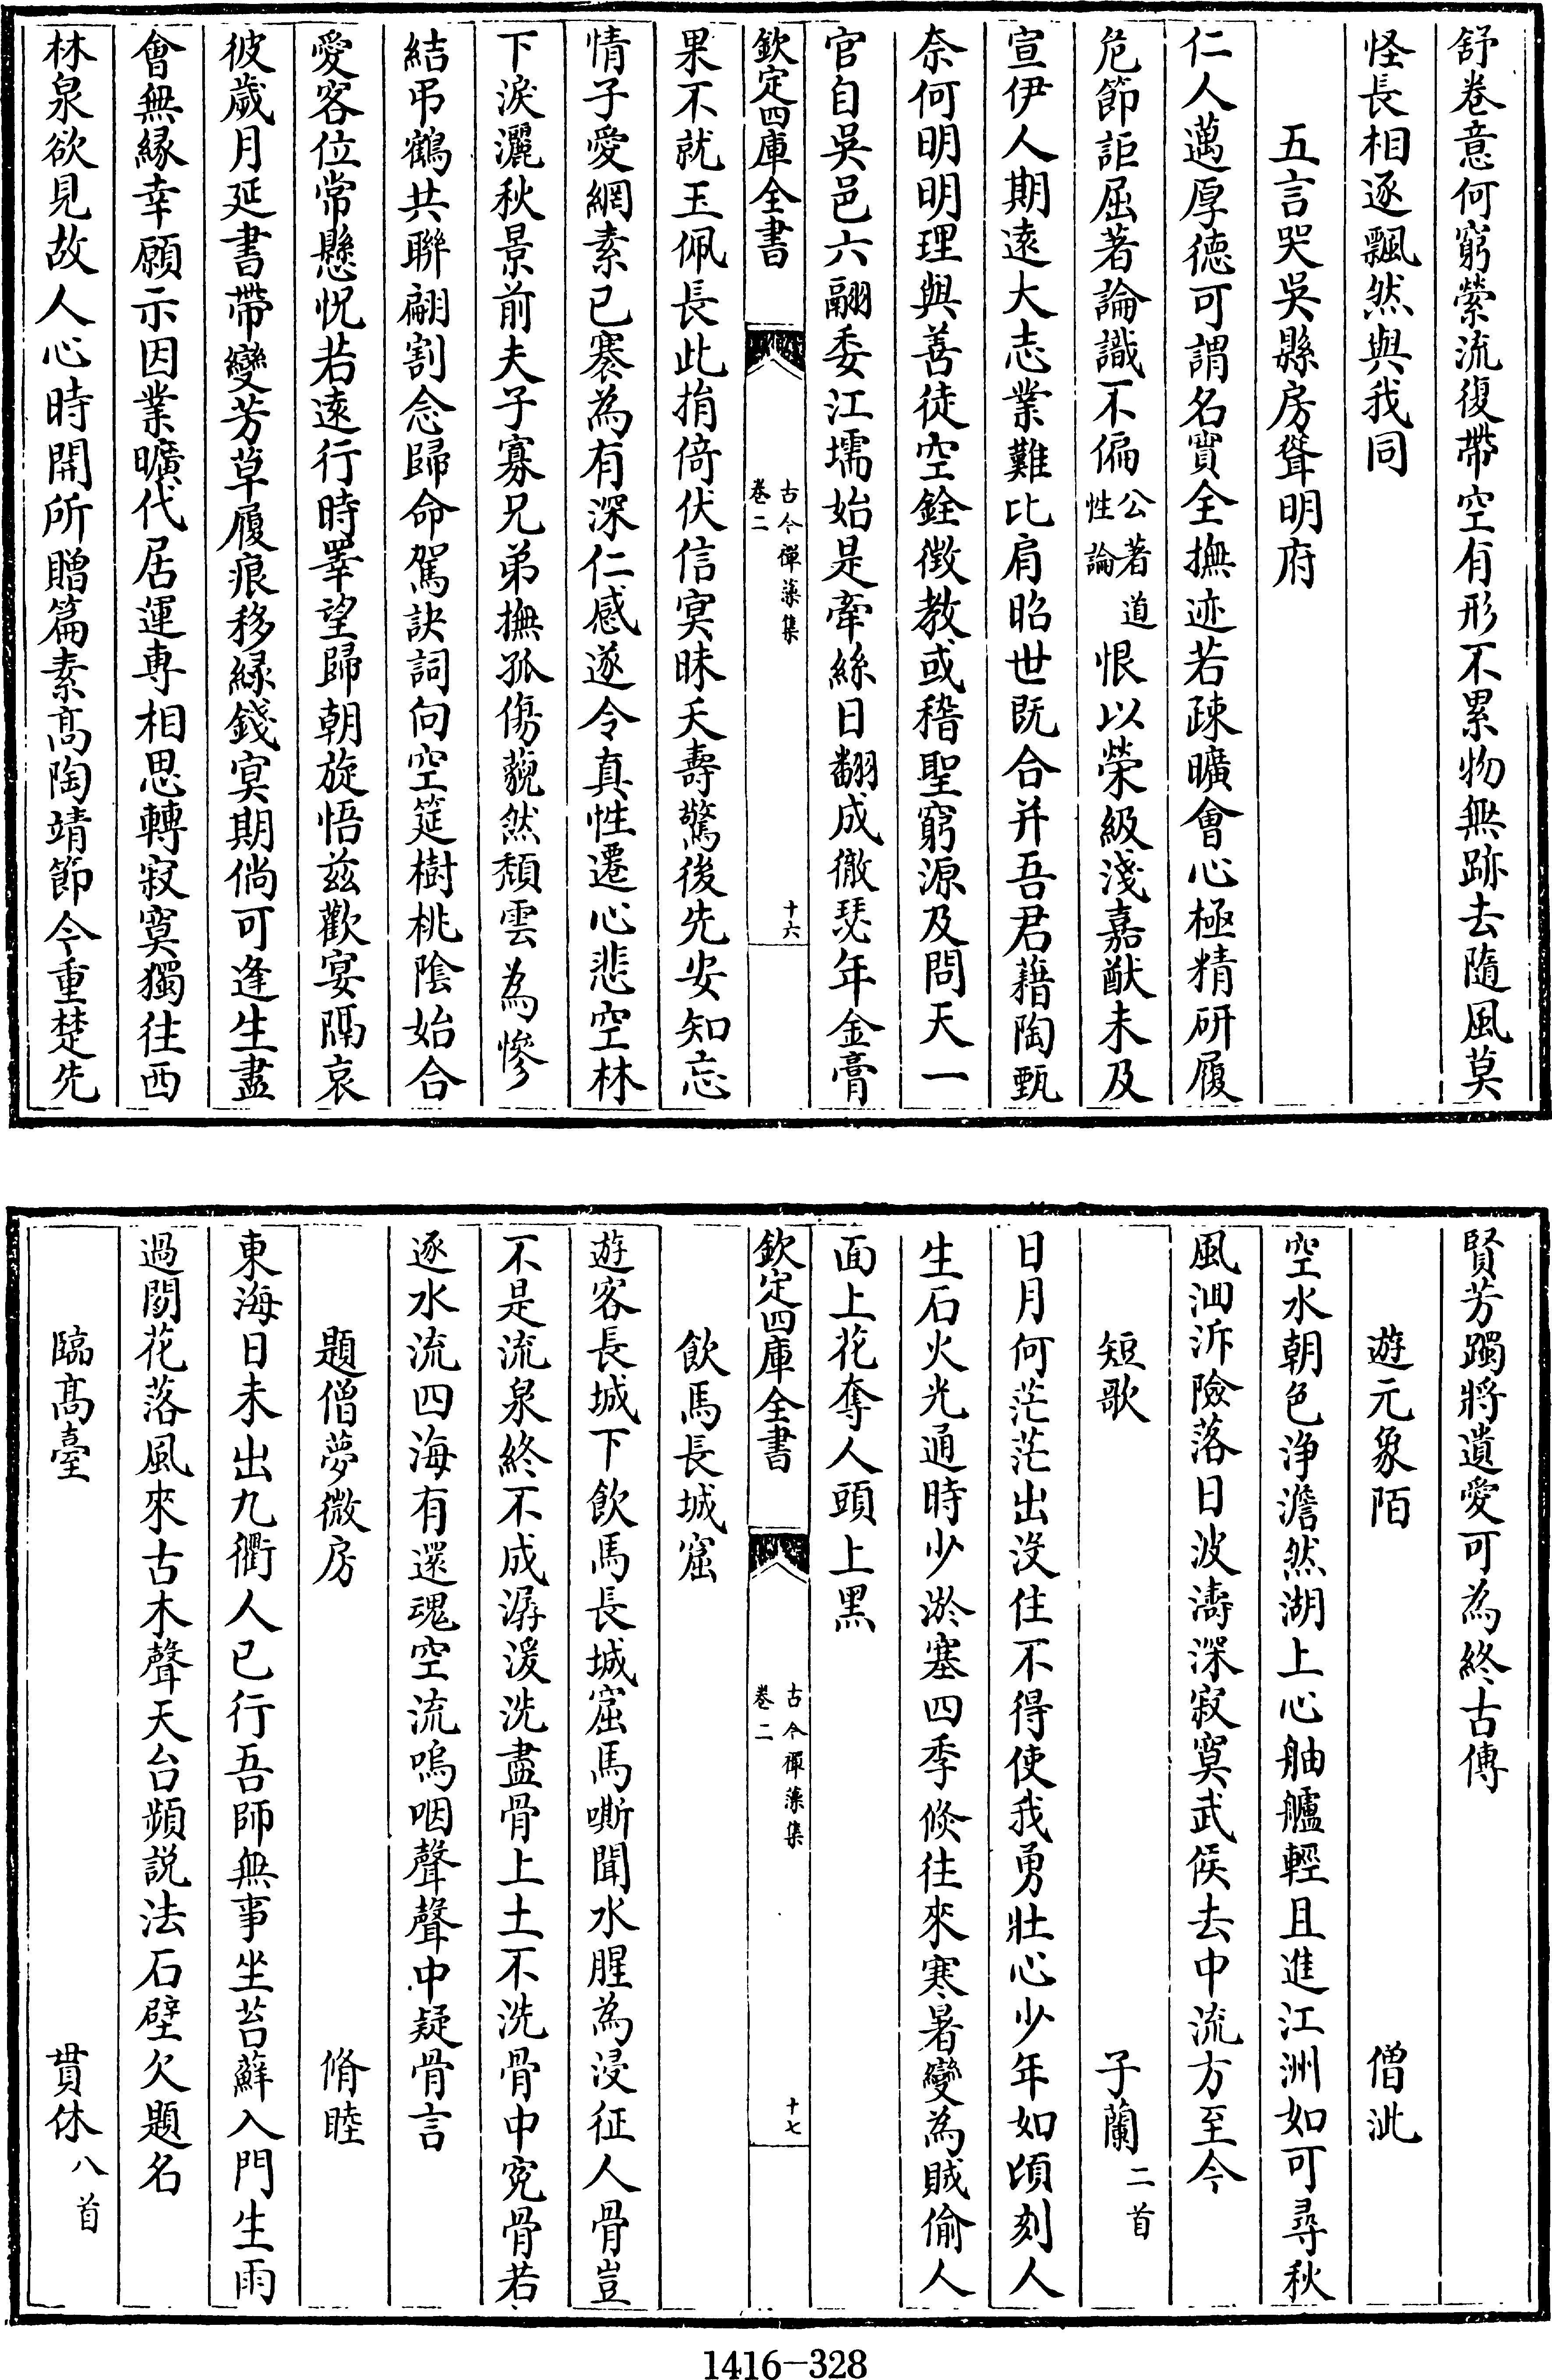 舒卷意何窮縈流復帶空有形不累物無跡去隨風莫
怪長相逐飄然與我同
五言哭吳縣房聳明府
仁人邁厚德可謂名實全撫迹若疎曠會心極精研履
危節詎屈著論識不偏公著道性論恨以榮級淺嘉猷未及
宣伊人期遠大志業難比肩昭世既合并吾君藉陶甄
奈何明明理與善徒空銓徴教或稽聖窮源及問天一
官自吳邑六翮委江壖始是牽絲日翻成徹瑟年金膏
欽定四庫全書
古今禪藻集
卷二
十六
果不就玉佩長此捐倚伏信冥昧夭壽驚後先安知忘
情子愛網素已褰為有深仁感遂令真性遷心悲空林
下淚灑秋景前夫子寡兄弟撫孤傷藐然頹雲為慘
結弔鶴共聯翩割念歸命駕訣詞向空筵樹桃陰始合
愛客位常懸怳若遠行時睪望歸朝旋悟兹歡宴隔哀
彼歲月延書帶變芳草履痕移緑錢冥期倘可逢生盡
會無縁幸願示因業曠代居運専相思轉寂寞獨往西
林泉欲見故人心時開所贈篇素髙陶靖節今重楚先
賢芳躅將遺愛可為終古傳
遊元象陌 僧泚
空水朝色浄澹然湖上心舳艫輕且進江洲如可尋秋
風洄泝險落日波濤深寂寞武侯去中流方至今
短歌 子蘭二首
日月何茫茫出沒住不得使我勇壯心少年如頃刻人
生石火光通時少淤塞四季倏往來寒暑變為賊偷人
面上花奪人頭上黑
欽定四庫全書
古今禪藻集
卷二
十七
飲馬長城窟
遊客長城下飲馬長城窟馬嘶聞水腥為浸征人骨豈
不是流泉終不成潺湲洗盡骨上土不洗骨中寃骨若
逐水流四海有還魂空流嗚咽聲聲中疑骨言
題僧夢微房 脩睦
東海日未出九衢人已行吾師無事坐苔蘚入門生雨
過閒花落風來古木聲天台頻説法石壁欠題名
臨髙臺 貫休八首
1416-328